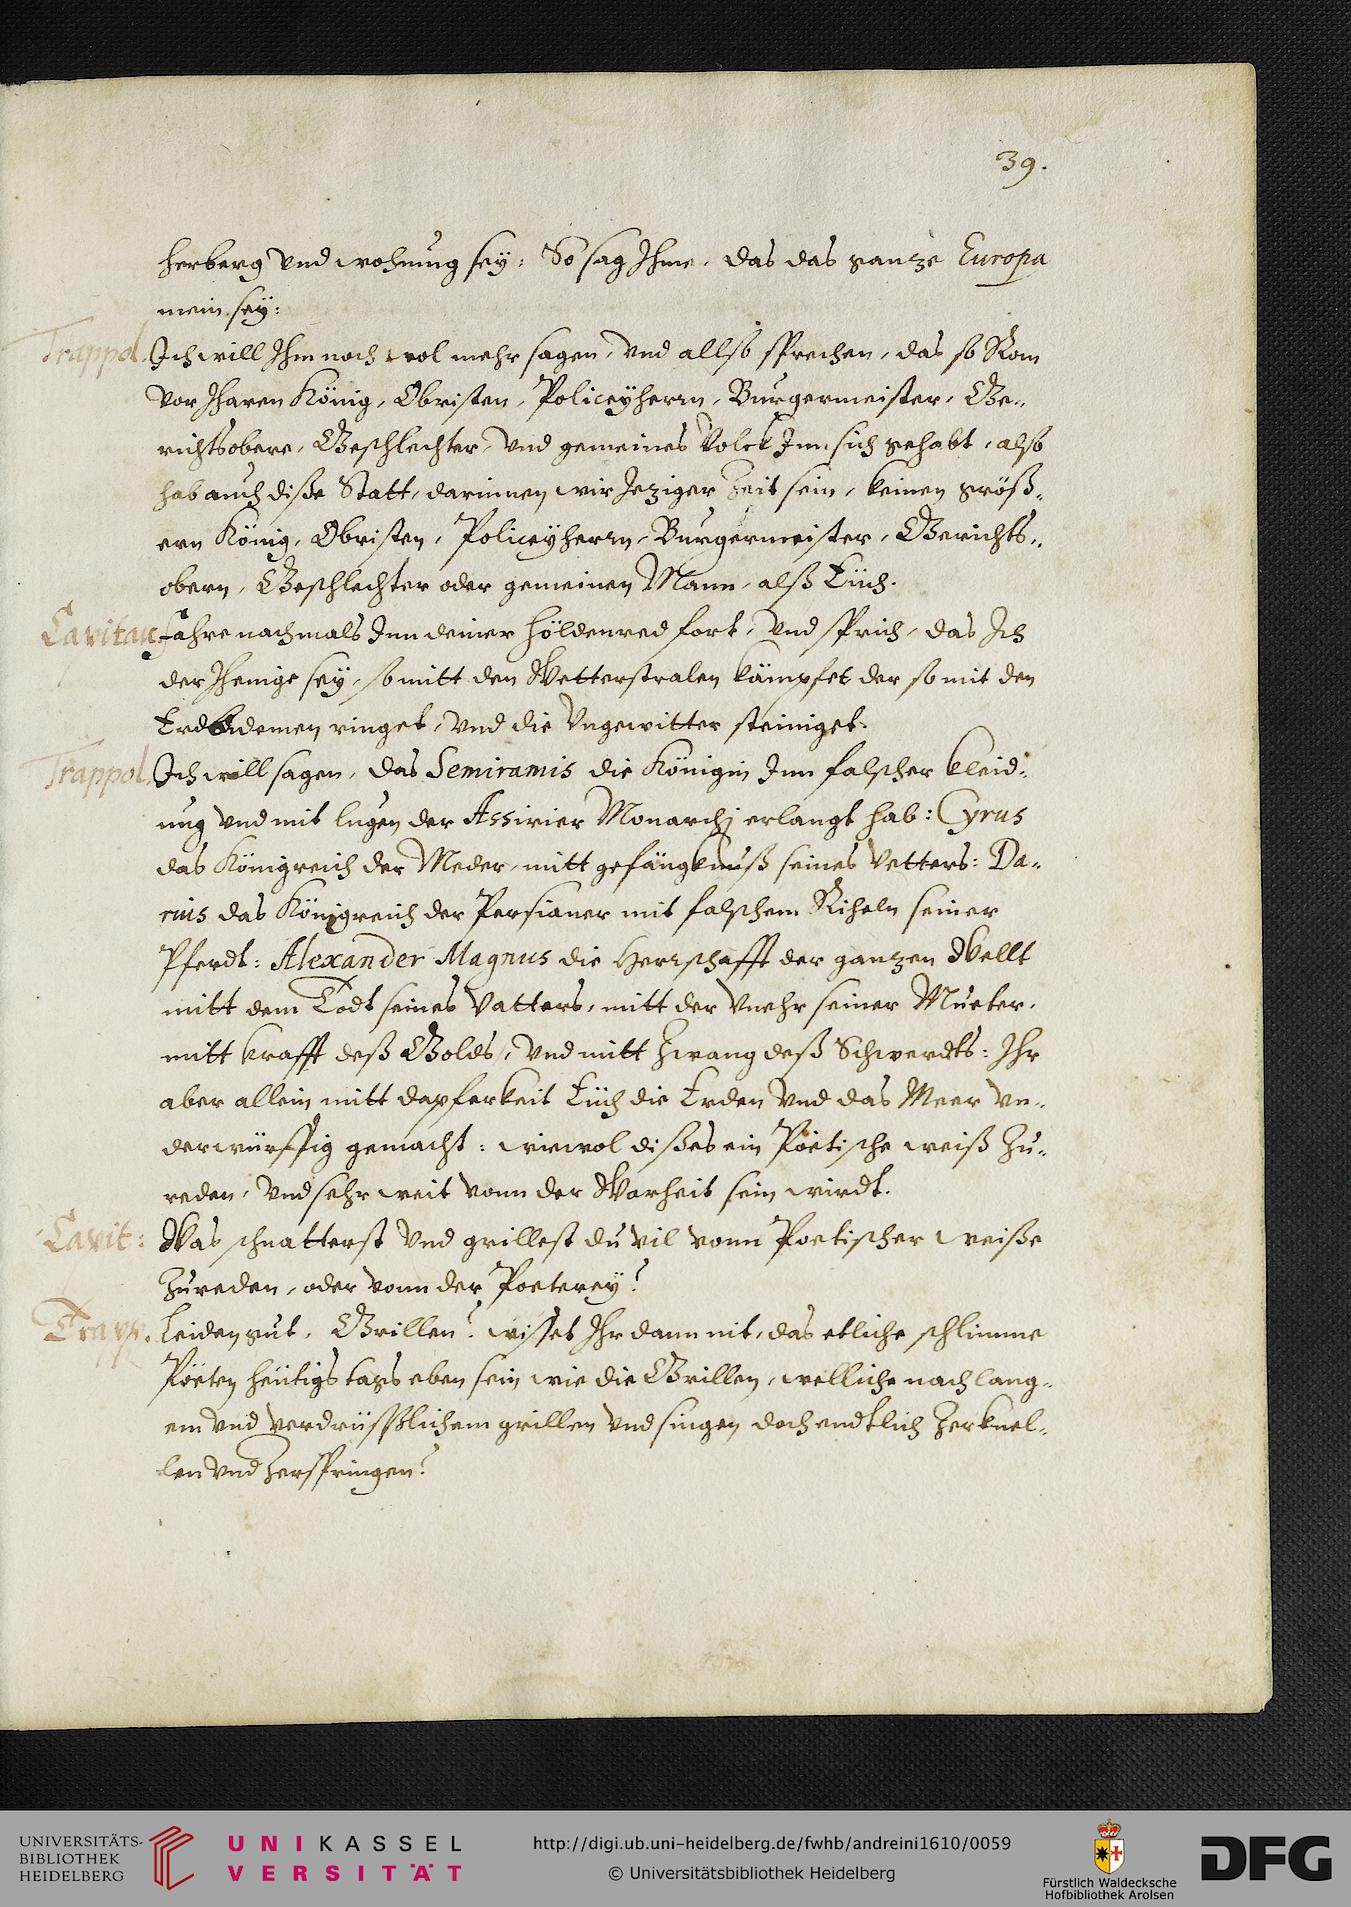 39.
herberg vnd wohnung sey: So sag Ihme, das das gantze Europa
mein sey:
Trappol. Ich will Ihm noch wol mehr sagen, vnd allso sprechen, das so Rom
vor Jharen König, Obristen, Policeyherrn, Burgermeister, Ge„
richtsobere, Geschlechter, vnd gemeines Volck Inn sich gehabt, also
hab auch diße Statt, darinnen wir Jeziger Zeit sein, keinen größ„
ern König, Obristen, Policeyherrn, Burgermeister, Gerichts„
obern, Geschlechter oder gemeinen Mann, alß Eüch.
Capitan: Fahre nachmals Inn deiner höldenred fort, vnd sprich, das Ich
der Jhenige sey, so mitt den Wetterstralen kämpfet der so mit den
Erdbidemen ringet, vnd die Vngewitter steiniget.
Trappol. Ich will sagen, das Semiramis die Königin Inn falscher kleid„
ung vnd mit lugen der Assirier Monarchj erlangt hab: Cyrus
das Königreich der Meder, mitt gefängknuß seines Vetters: Da„
rius das Königreich der Persianer mit falschem Riheln seiner
Pferdt: Alexander Magnus die Herrschafft der ganzen Wellt
mitt dem Todt seines Vatters, mitt der Vnehr seiner Mueter,
mitt krafft deß Golds, vnd mitt Zwang deß Schwerdts: Ihr
aber allein mitt dapferkeit Eüch die Erden vnd das Meer vn„
derwürffig gemacht: wiewol dißes ein Poëtische weiß Zu„
reden, vnd sehr weit vonn der Warheit sein wirdt.
Capit: Was schnatterst vnd grillest du vil vonn Poetischer weiße
Zureden, oder vonn der Poeterey?
Trapp. Leiden gut, Grillen? wisset Ihr dann nit, das etliche schlimme
Poëten heütigs tags eben sein wie die Grillen, welliche nach lang„
em vnd verdrüsßlichem grillen vnd singen doch endtlich Zerknel„
len vnd Zerspringen?
UNIVERSITÄTS-
BIBLIOTHEK
HEIDELBERG
UNIKASSEL
VERSITÄT
http://digi.ub.uni-heidelberg.de/fwhb/andreini1610/0059
© Universitätsbibliothek Heidelberg
Fürstlich Waldecksche
Hofbibliothek Arolsen
DFG